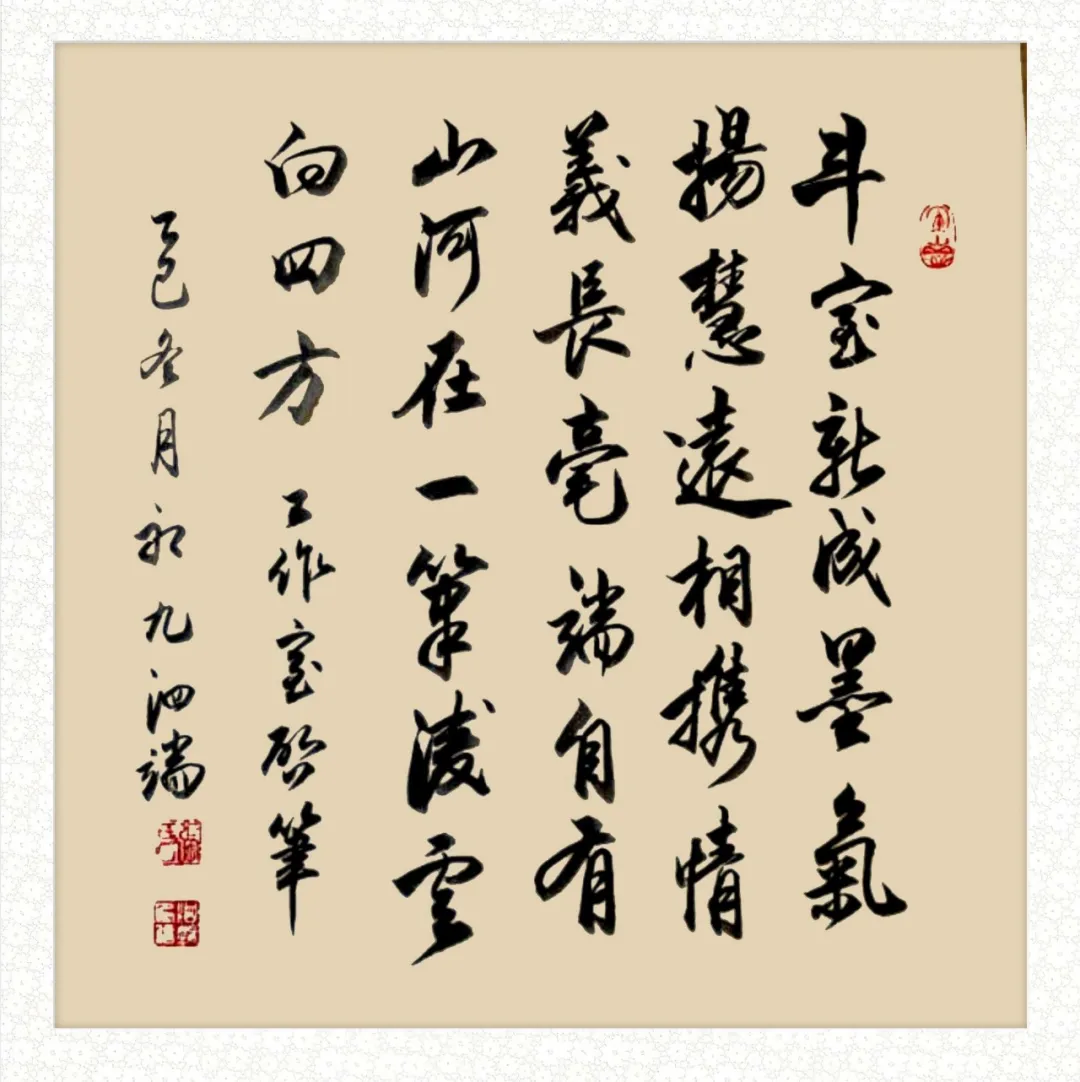 斗室新成墨氣
揚慧遠相携情
義長毫端自有
山河在一筆淩雲
向四方 工作室啟筆
乙巳冬月初九泗端